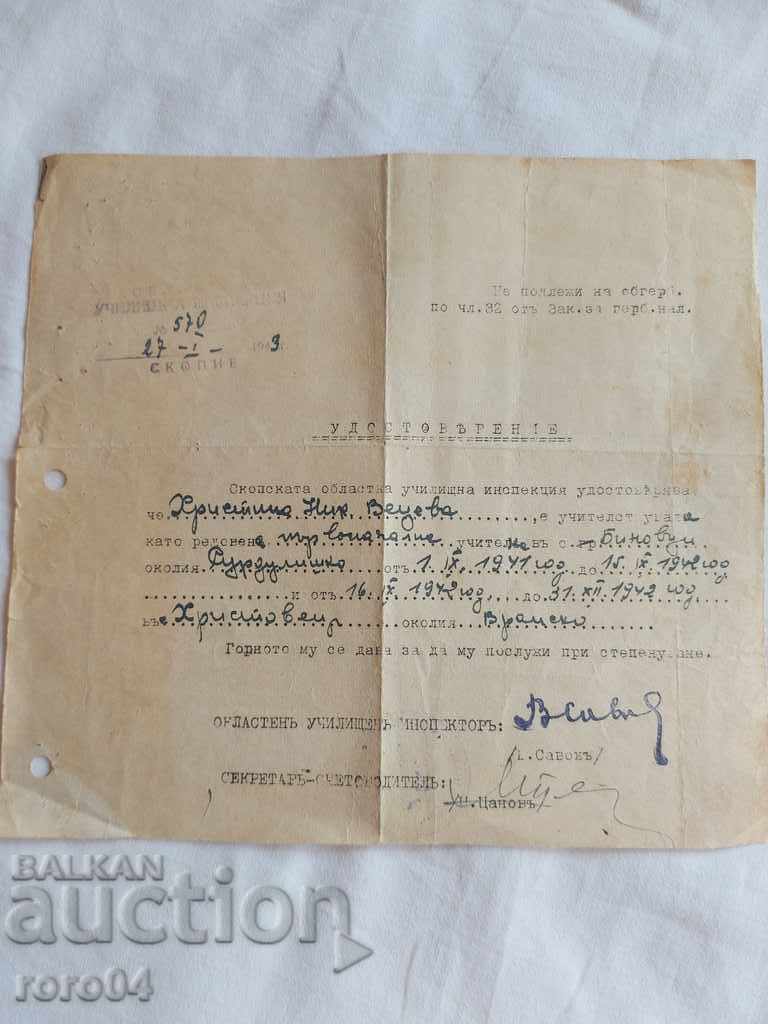 № 570
27 - I - 1943
СКОПИЕ
Не подлежи на обгерб.
по чл.32 отъ Зак.за герб.нал.
УДОСТОВѢРЕНИЕ
Скопската областна училищна инспекция удостовѣрява
че Христина Ник. Вецова, е учителст
като редовен първоначалн учител въ с. Биновци
околия Сурдулишко отъ 1.IX.1941 год. до 15.IX.1942 год
и отъ 16.IX.1942 год. до 31.XII.1942 год.
въ Христовец околия Вранско
Горното му се дава за да му послужи при степенуване.
ОБЛАСТЕНЪ УЧИЛИЩЕНЪ ИНСПЕКТОРЪ:
Савовъ/
СЕКРЕТАРЬ-СЧЕТОВОДИТЕЛЬ:
Цановъ/
BALKAN
auction
roro04